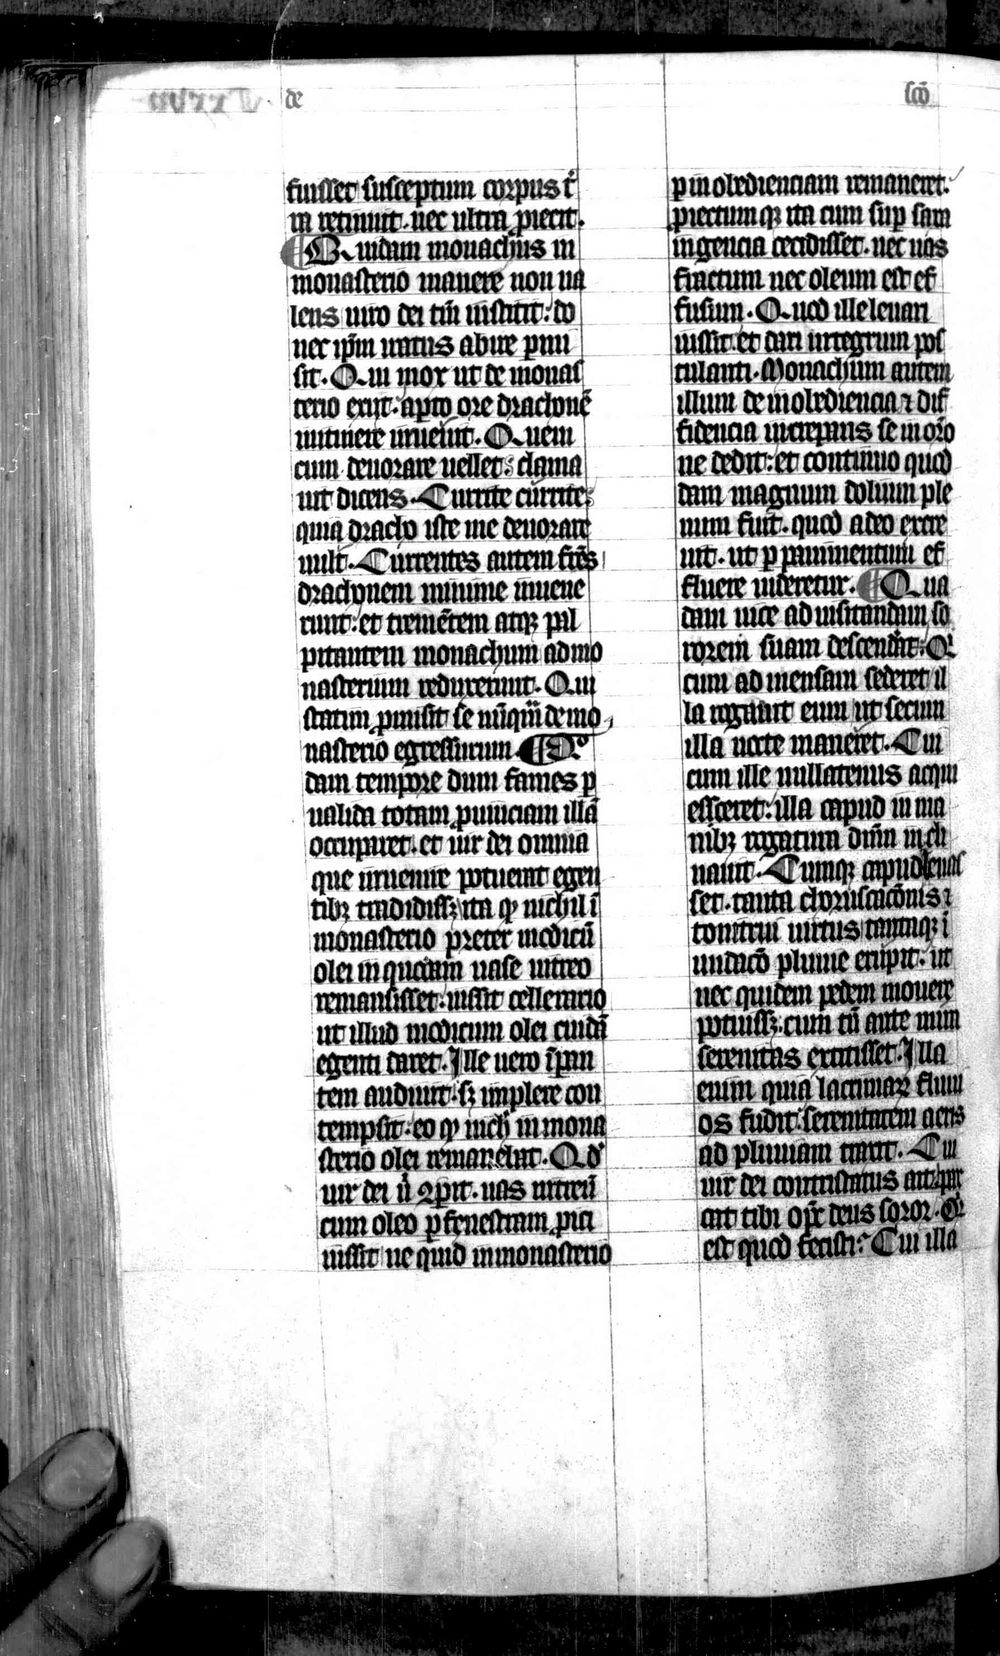 de
sco̅
fuisset susceptum corpus t͛
ra retinuit. nec ultra p̱iecit.
¶ Quidam monachus in
monasterio manere non ua
lens uiro dei tm̅ institit: do
nec ip̅m iratus abire p̲mi
sit. Qui mox ut de monas
terio exijt. ap̲to ore drachone̅
in itinere inuenit. Quem
cum deuorare uellet: clama
uit dicens. Currite currite:
quia dracho iste me deuorare
uult. Currentes autem fr̅es
drachonem minime inuene
runt: et treme̅tem atqꝫ pal
pitantem monachum ad mo
nasterium reduxerunt. Qui
statim p̱misit se nu̅qua̅ de mo
nasterio egressurum. ¶ Qo
dam tempore dum fames p̲
ualida totam p̱uinciam illa̅
occuparet. et uir dei omnia
que inuenire potuerat egen
tibꝫ tradidissꝫ ita qd̅ nichil i̅
monasterio preter modicu̅
olei in quodam uase uitreo
remansisset: iussit cellerario
ut illud modicum olei cuida̅
egenti daret. Ille uero i̅pan
tem audiuit: sꝫ implere con
tempsit: eo qd̅ nich̅ in mona
sterio olei remaneb̅at. Qd̅
uir dei u̅ ꝯp̲it. uas uitreu̅
cum oleo p̲ fenestram p̱ici
iussit ne quid in monasterio
p̲ inobedienciam remaneret.
p̱iectum qꝫ ita cum sup̲ saxa
ingencia cecidisset. nec uas
fractum nec oleum est ef
fusum. Quod ille leuari
iussit et dari integrum pos
tulanti. Monachum autem
illum de inobediencia ⁊ dif
fidencia increpans se in oro̅
ne dedit: et continuo quod
dam magnum dolium ple
num fuit. quod adeo excre
uit. ut p̲ pauimentum ef
fluere uideretur. ¶ Qua
dam uice ad uisitandam so
rorem suam descend̅it. Qͥ
cum ad mensam sederet il
la rogauit eum ut secum
illa nocte maneret. Cui
cum ille nullatenus acqui
esceret: illa capud in ma
nibꝫ rogatura dn̅m incli
nauit. Cumqꝫ capud leuas
set. tanta choruscac̅onis ⁊
tonitrui uirtus tantaqꝫ i̅
undaco̅ pluuie erupit: ut
nec quidem pedem mouere
potuissꝫ: cum tn̅ ante mira
serenitas extitisset. Illa
enim quia lacrimaꝝ fluui
os fudit: serenitatem aeris
ad pluuiam traxit. Cui
uir dei contristatus ait: par
cat tibi op̅s deus soror. Qͥ
est quod fecisti? Cui illa